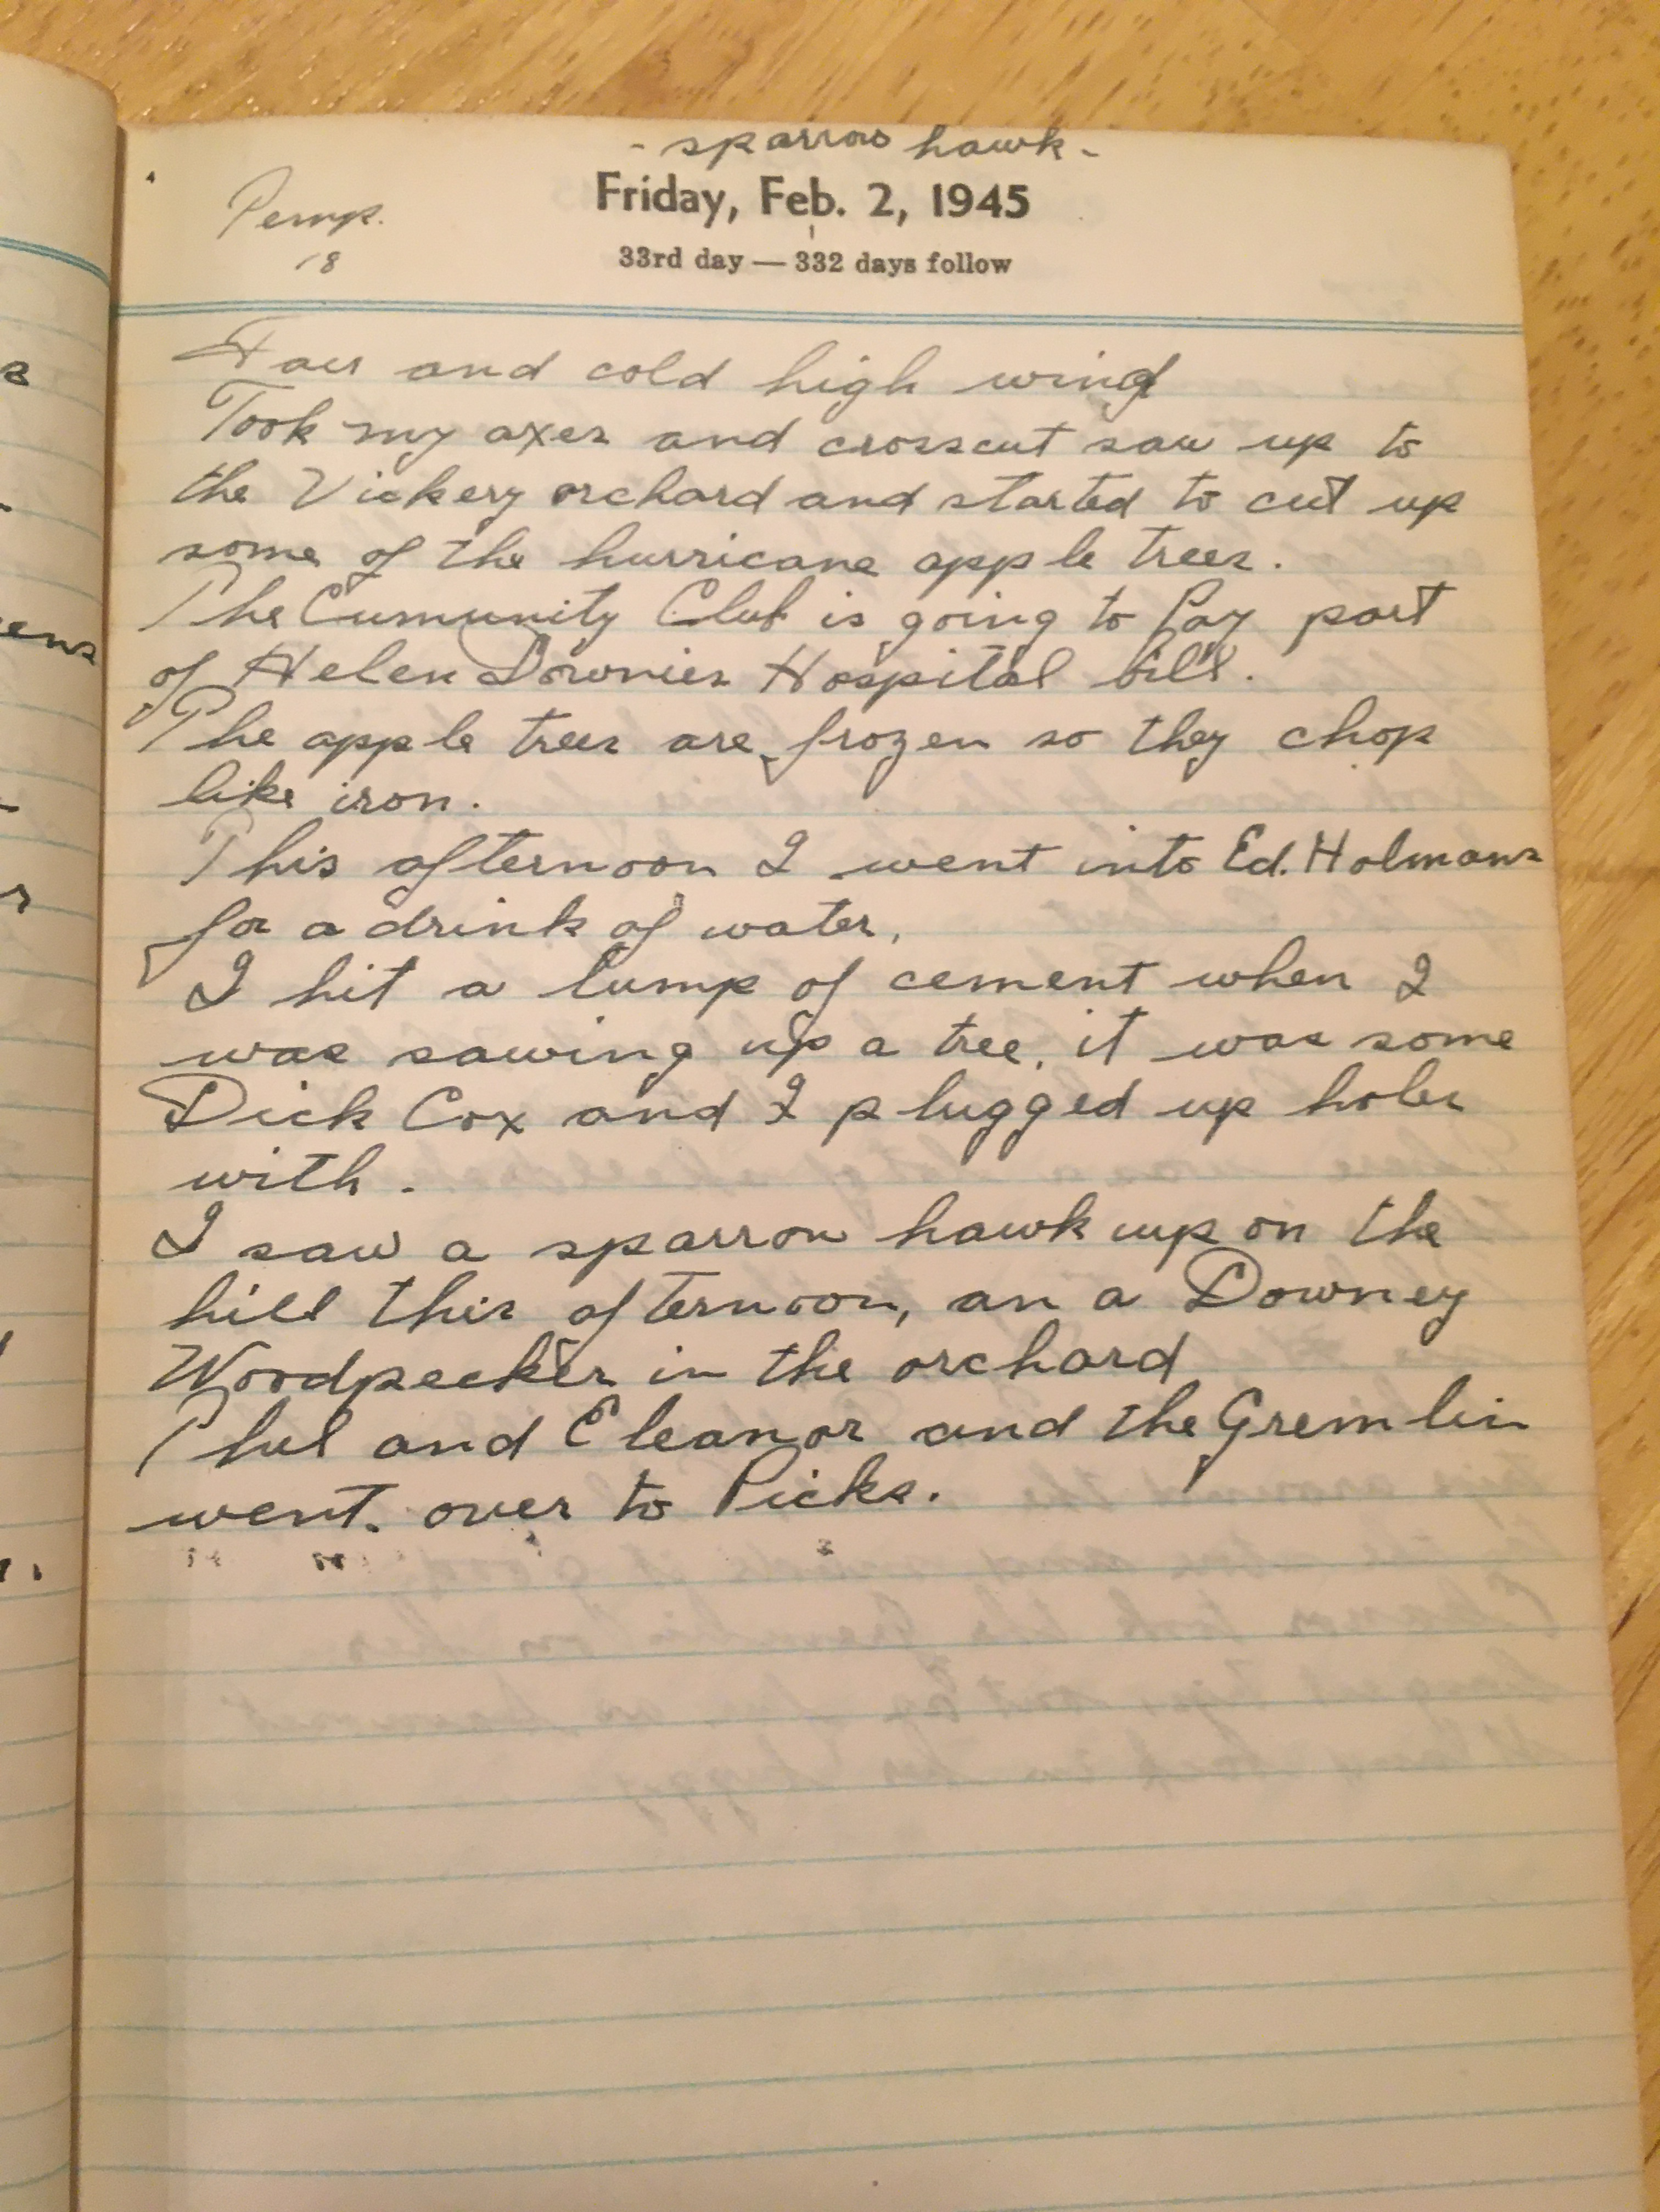 - sparrow hawk -
Friday, Feb. 2, 1945
Temp.
18
33rd day — 332 days follow
Fair and cold high wind
Took my axes and crosscut saw up to
the Vickery orchard and started to cut up
some of the hurricane apple trees.
The Cumunity Club is going to Pay part
of Helen Downies Hospital bill.
The apple trees are frozen so they chop
like iron.
This afternoon I went into Ed. Holmans
for a drink of water,
I hit a lump of cement when I
was sawing up a tree, it was some
Dick Cox and I plugged up holes
with.
I saw a sparrow hawk up on the
hill this afternoon, an a Downey
Woodpecker in the orchard
Phil and Eleanor and the Gremlin
went. over to Picks.